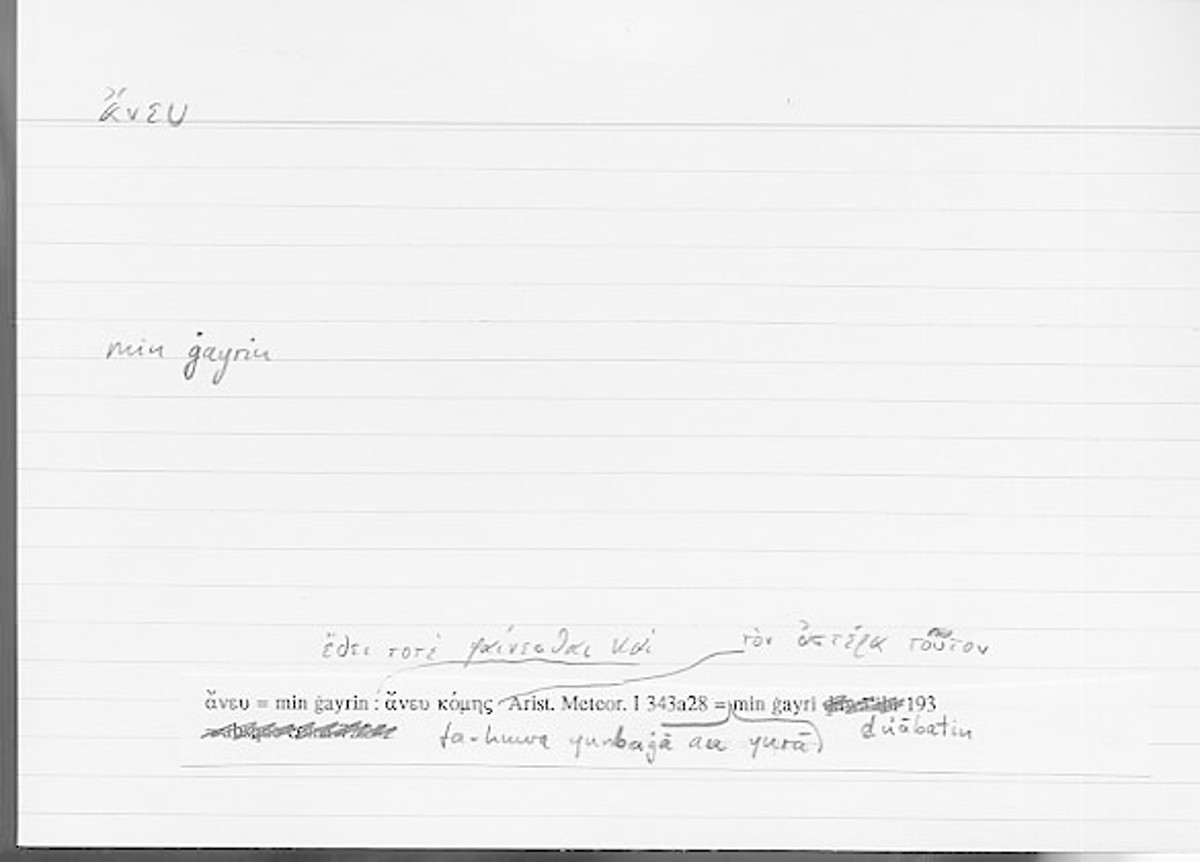 ἄνευ
min ġayrin
ἔδει ποτὲ φαίνεσθαι καὶ τὸν ἀστέρα τοῦτον
ἄνευ = min ġayrin : ἄνευ κόμης Arist. Meteor. I 343a28 = min ġayri 193
fa-huwa yanbaġī an yurā ḏuʾābatin